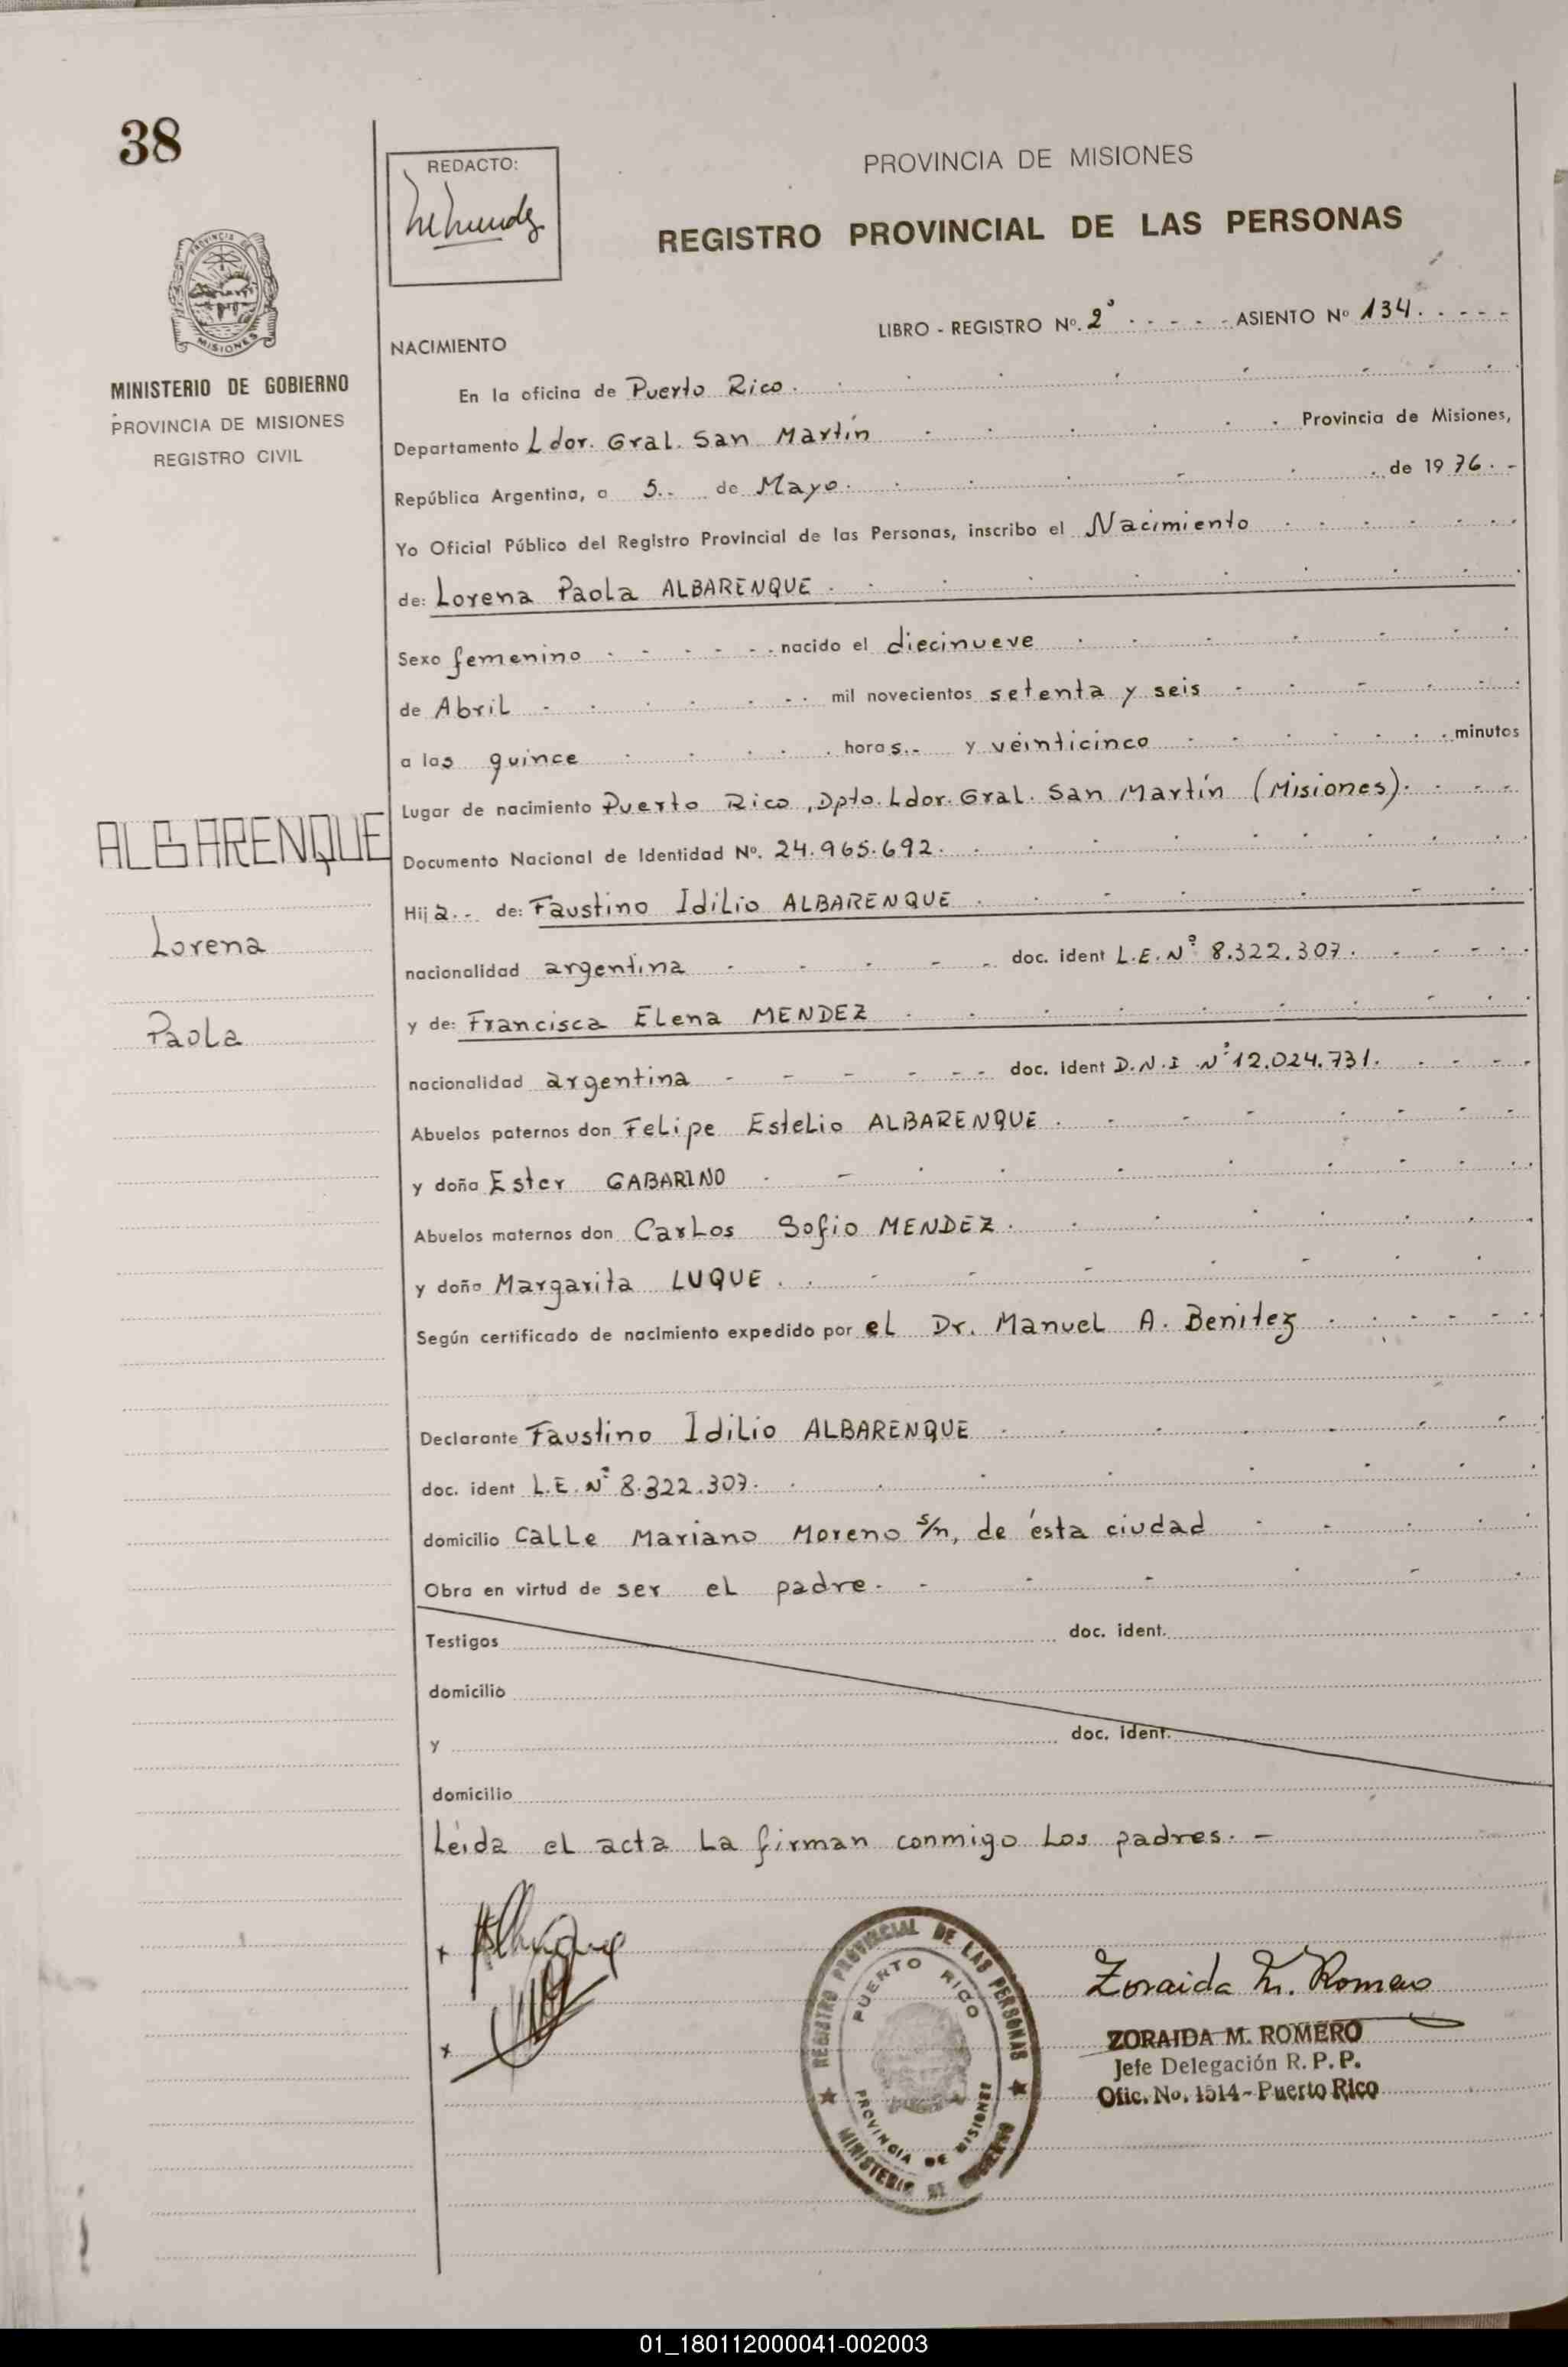 38
REDACTO:
PROVINCIA DE MISIONES
REGISTRO PROVINCIAL DE LAS PERSONAS
PROVINCIA DE
MISIONES
MINISTERIO DE GOBIERNO
PROVINCIA DE MISIONES
REGISTRO CIVIL
LIBRO - REGISTRO Nº. 2º - - - - ASIENTO Nº 134. - - - -
NACIMIENTO
En la oficina de Puerto Rico.
Departamento Ldor. Gral. San Martín Provincia de Misiones,
República Argentina, a 5.- de Mayo. de 1976. -
Yo Oficial Público del Registro Provincial de las Personas, inscribo el Nacimiento
de: Lorena Paola ALBARENQUE.
Sexo femenino - - - - - nacido el diecinueve
de Abril - - - - - mil novecientos setenta y seis
a las quince horas.- y veinticinco minutos
Lugar de nacimiento Puerto Rico, Dpto. Ldor. Gral. San Martín (Misiones).
Documento Nacional de Identidad Nº. 24.965.692.
Hija.- de: Faustino Idilio ALBARENQUE
nacionalidad argentina - - - - - doc. ident L.E. Nº 8.322.307.
y de: Francisca Elena MENDEZ
nacionalidad argentina - - - - - doc. ident D.N.I Nº 12.024.731.
Abuelos paternos don Felipe Estelio ALBARENQUE.
y doña Ester GABARINO
Abuelos maternos don Carlos Sofio MENDEZ.
y doña Margarita LUQUE.
Según certificado de nacimiento expedido por el Dr. Manuel A. Benitez
Declarante Faustino Idilio ALBARENQUE
doc. ident L.E. Nº 8.322.307.
domicilio Calle Mariano Moreno s/n, de ésta ciudad
Obra en virtud de ser el padre.
Testigos doc. ident.
domicilio
y doc. ident.
domicilio
Leída el acta la firman conmigo los padres. -
ALBARENQUE
Lorena
Paola
x
x
REGISTRO PROVINCIAL DE LAS PERSONAS
PUERTO RICO
PROVINCIA DE MISIONES
MINISTERIO DE GOBIERNO
Zoraida M. Romero
ZORAIDA M. ROMERO
Jefe Delegación R. P. P.
Ofic. No. 1514 - Puerto Rico
01_180112000041-002003